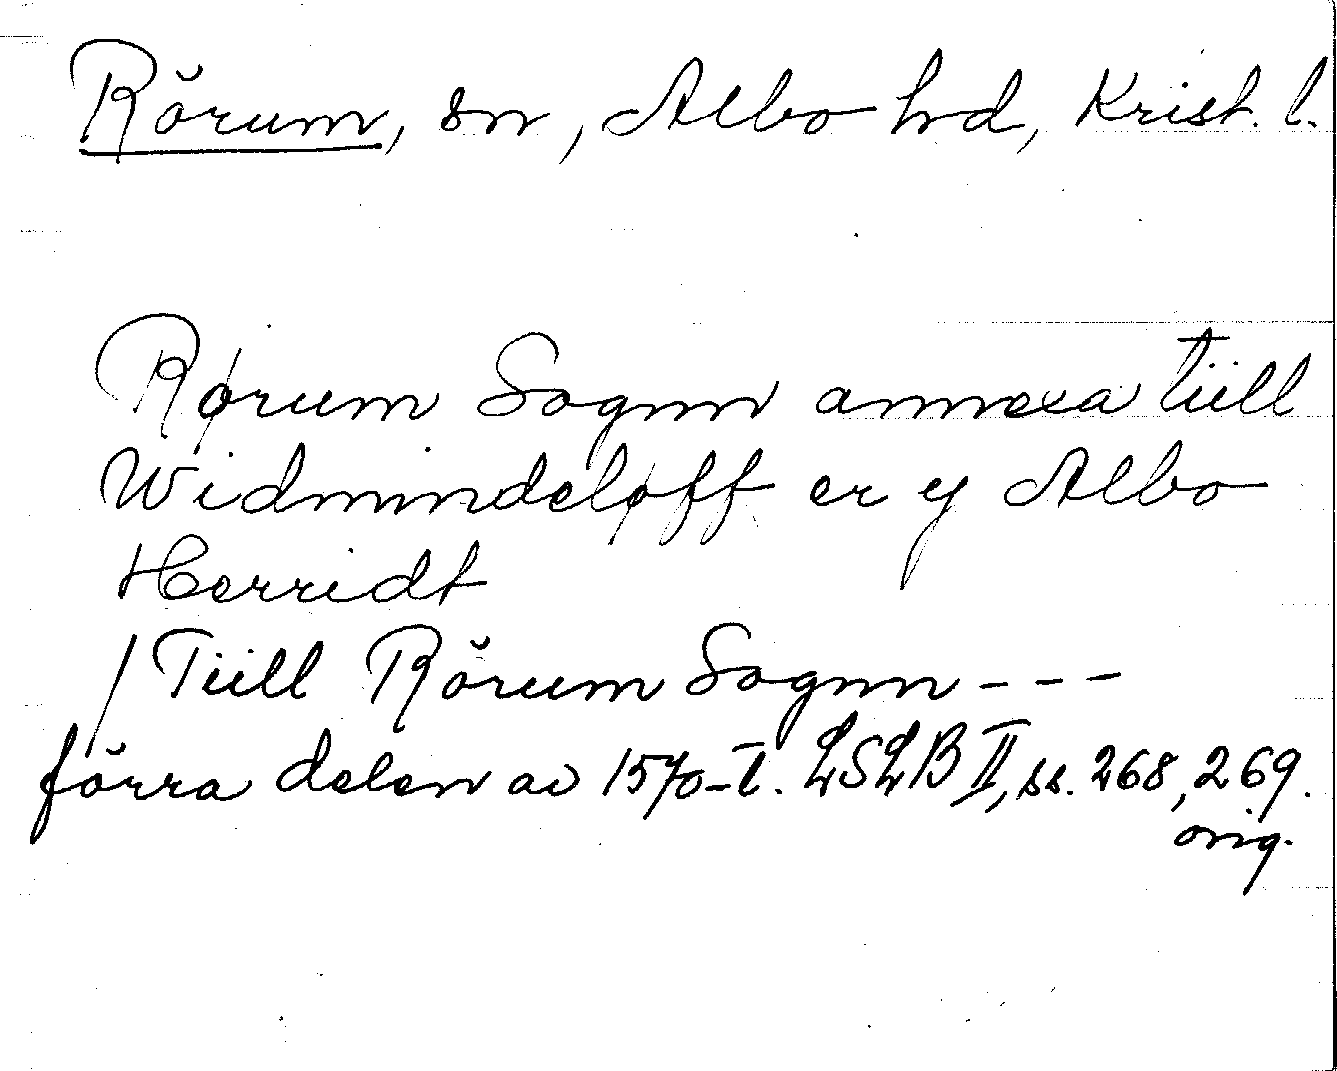 Rörum, sn, Albo hd, Krist. l.
Rørum Sognn annexa tiill
Widmindeløff er y Albo
Herridt
/ Tiill Rörum Sognn - - -
förra delen av 1570-t. LSLB II, ss. 268, 269.
orig.